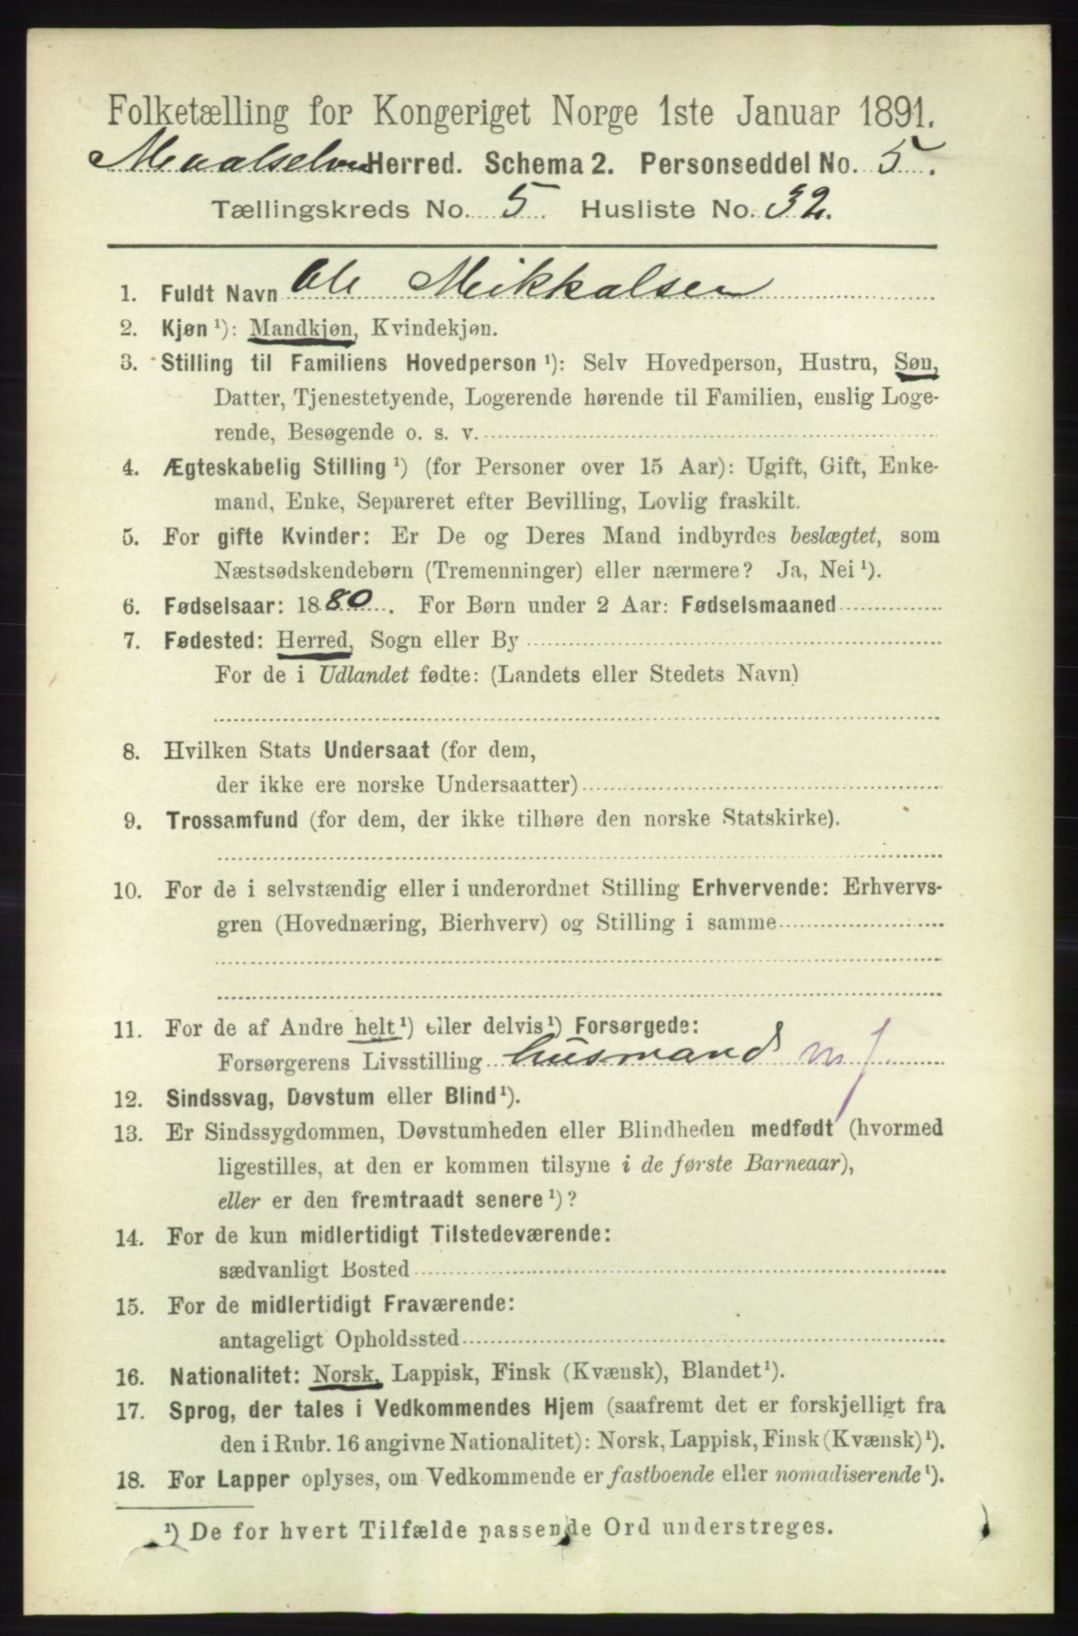 Folketælling for Kongeriget Norge 1ste Januar 1891.
Maalselven Herred. Schema 2. Personseddel No. 5.
Tællingskreds No. 5. Husliste No. 32.
1. Fuldt Navn Ole Mikkalsen
2. Kjøn ¹): Mandkjøn, Kvindekjøn.
3. Stilling til Familiens Hovedperson ¹): Selv Hovedperson, Hustru, Søn,
Datter, Tjenestetyende, Logerende hørende til Familien, enslig Loge-
rende, Besøgende o. s. v.
4. Ægteskabelig Stilling ¹) (for Personer over 15 Aar): Ugift, Gift, Enke-
mand, Enke, Separeret efter Bevilling, Lovlig fraskilt.
5. For gifte Kvinder: Er De og Deres Mand indbyrdes beslægtet, som
Næstsødskendebørn (Tremenninger) eller nærmere? Ja, Nei ¹).
6. Fødselsaar: 1880. For Børn under 2 Aar: Fødselsmaaned
7. Fødested: Herred, Sogn eller By
For de i Udlandet fødte: (Landets eller Stedets Navn)
8. Hvilken Stats Undersaat (for dem,
der ikke ere norske Undersaatter)
9. Trossamfund (for dem, der ikke tilhøre den norske Statskirke).
10. For de i selvstændig eller i underordnet Stilling Erhvervende: Erhvervs-
gren (Hovednæring, Bierhverv) og Stilling i samme
11. For de af Andre helt ¹) eller delvis ¹) Forsørgede:
Forsørgerens Livsstilling husmand m f
12. Sindssvag, Døvstum eller Blind ¹).
13. Er Sindssygdommen, Døvstumheden eller Blindheden medfødt (hvormed
ligestilles, at den er kommen tilsyne i de første Barneaar),
eller er den fremtraadt senere ¹)?
14. For de kun midlertidigt Tilstedeværende:
sædvanligt Bosted
15. For de midlertidigt Fraværende:
antageligt Opholdssted
16. Nationalitet: Norsk, Lappisk, Finsk (Kvænsk), Blandet ¹).
17. Sprog, der tales i Vedkommendes Hjem (saafremt det er forskjelligt fra
den i Rubr. 16 angivne Nationalitet): Norsk, Lappisk, Finsk (Kvænsk) ¹).
18. For Lapper oplyses, om Vedkommende er fastboende eller nomadiserende ¹).
¹) De for hvert Tilfælde passende Ord understreges.